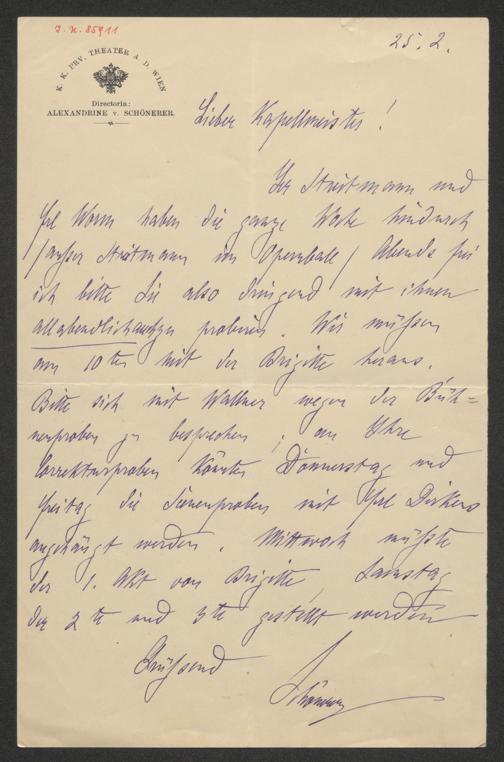 J. N. 85911
K. K. PRV. THEATER A. D. WIEN
Directorin:
ALEXANDRINE v. SCHÖNERER.
25. 2.
Lieber Kapellmeister!
Streitmann und
Frl Worm haben die ganze Woche hindurch
/außer Streitmann im Opernball/ Abends frei
ich bitte Sie also dringend mit ihnen
allabendlich probiren. Wir müssen
am 10ten mit der Brigitte heraus.
Bitte sich mit Wallner wegen der Büh=
nenproben zu besprechen; an Ihre
Correkturproben könnten Donnerstag und
Freitag die Scenenproben mit Frl Dirkens
angehängt werden. Mittwoch müßte
der 1. Akt von Brigitte, Samstag
der 2te und 3te gestellt werden
Grüssend
Schönerer